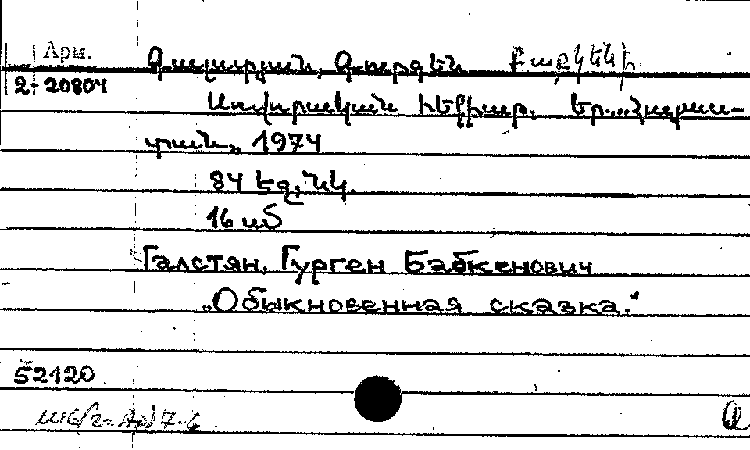 Арм.
Գալստյան, Գուրգեն Բաբկենի
2-20804
Սովորական հեքիաթ. Եր., „Հայաս-
տան„, 1974
84 էջ, նկ.
16 սմ
Галстян, Гурген Бабкенович
„Обыкновенная сказка.“
52120
Ա